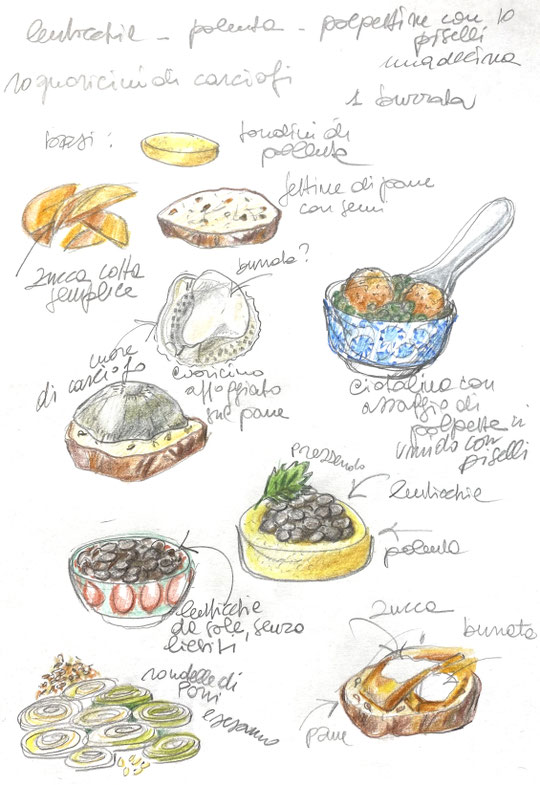 lenticchie - polenta - polpettine con 10
piselli
una decina
cuoricini di carciofi
1 burrata
basi:
tondini di
polenta
fettine di pane
con semi
zucca cotta
semplice
burrata?
cuore
di carciofo
cuoricino
appoggiato
sul pane
ciotolina con
assaggio di
polpette in
umido con
piselli
prezzemolo
lenticchie
polenta
lenticchie
da sole, senza
lieviti
rondelle di
porri
e sesamo
zucca
burrata
pane